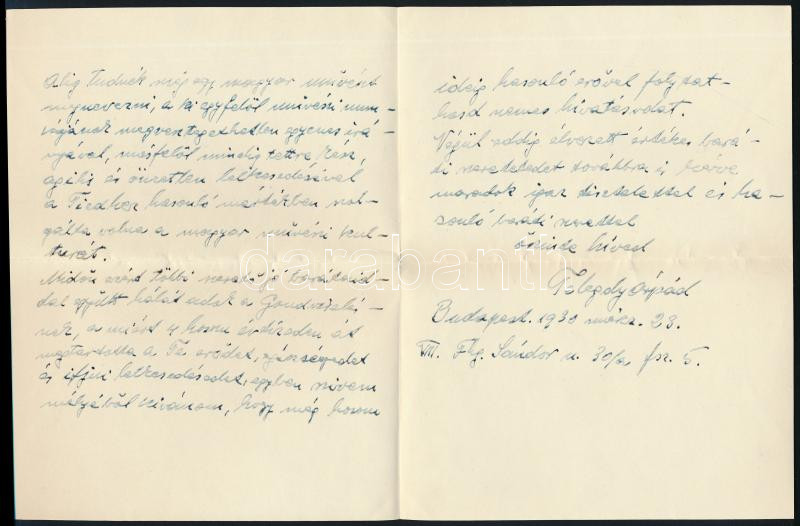 Alig tudnék még egy magyar művészt
megnevezni, a ki egyfelől művészi mun-
kájának megvesztegethetlen egyenes irá-
nyával, másfelől mindig tettre kész,
agilis és önzetlen lelkesedésével
a Tiedhez hasonló mértékben szol-
gálta volna a magyar művészi kul-
turát.
Midőn ezért többi barátaid-
dal együtt hálát adok a Gondviselés-
nek, a miért 4 hosszu évtizeden át
megtartotta a Te erődet, egészségedet
és ifjui lelkesedésedet, egyben szivem
mélyéből kivánom, hogy még hosszu
ideig hasonló erővel folytat-
hasd nemes hivatásodat.
Végül eddig élvezett értékes bará-
ti szeretetedet továbbra is kérve
maradok igaz tisztelettel és ha-
sonló baráti szeretettel
őszinte hived
Hegedy Árpád
Budapest. 1930 márcz. 28.
VIII. Fhg. Sándor u. 30/a fsz. 5.
darabanth